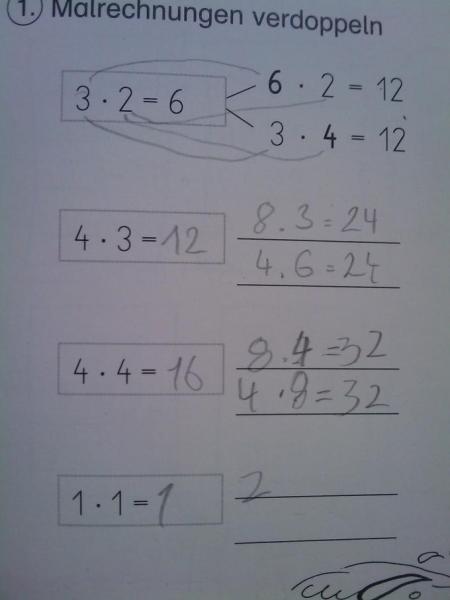 1. Malrechnungen verdoppeln
3 · 2 = 6
6 · 2 = 12
3 · 4 = 12
4 · 3 = 12
8 . 3 = 24
4 . 6 = 24
4 · 4 = 16
8 . 4 = 32
4 · 8 = 32
1 · 1 = 1
2